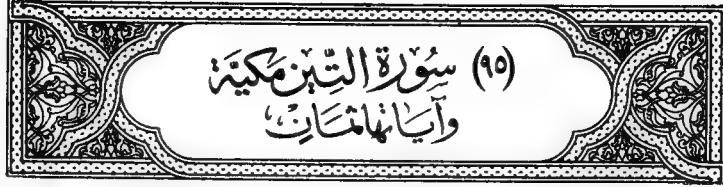 (٩٥) سُورَةُ التِّينِ مَكِيَّة
وَآيَاتُهَا ثَمَانٍ